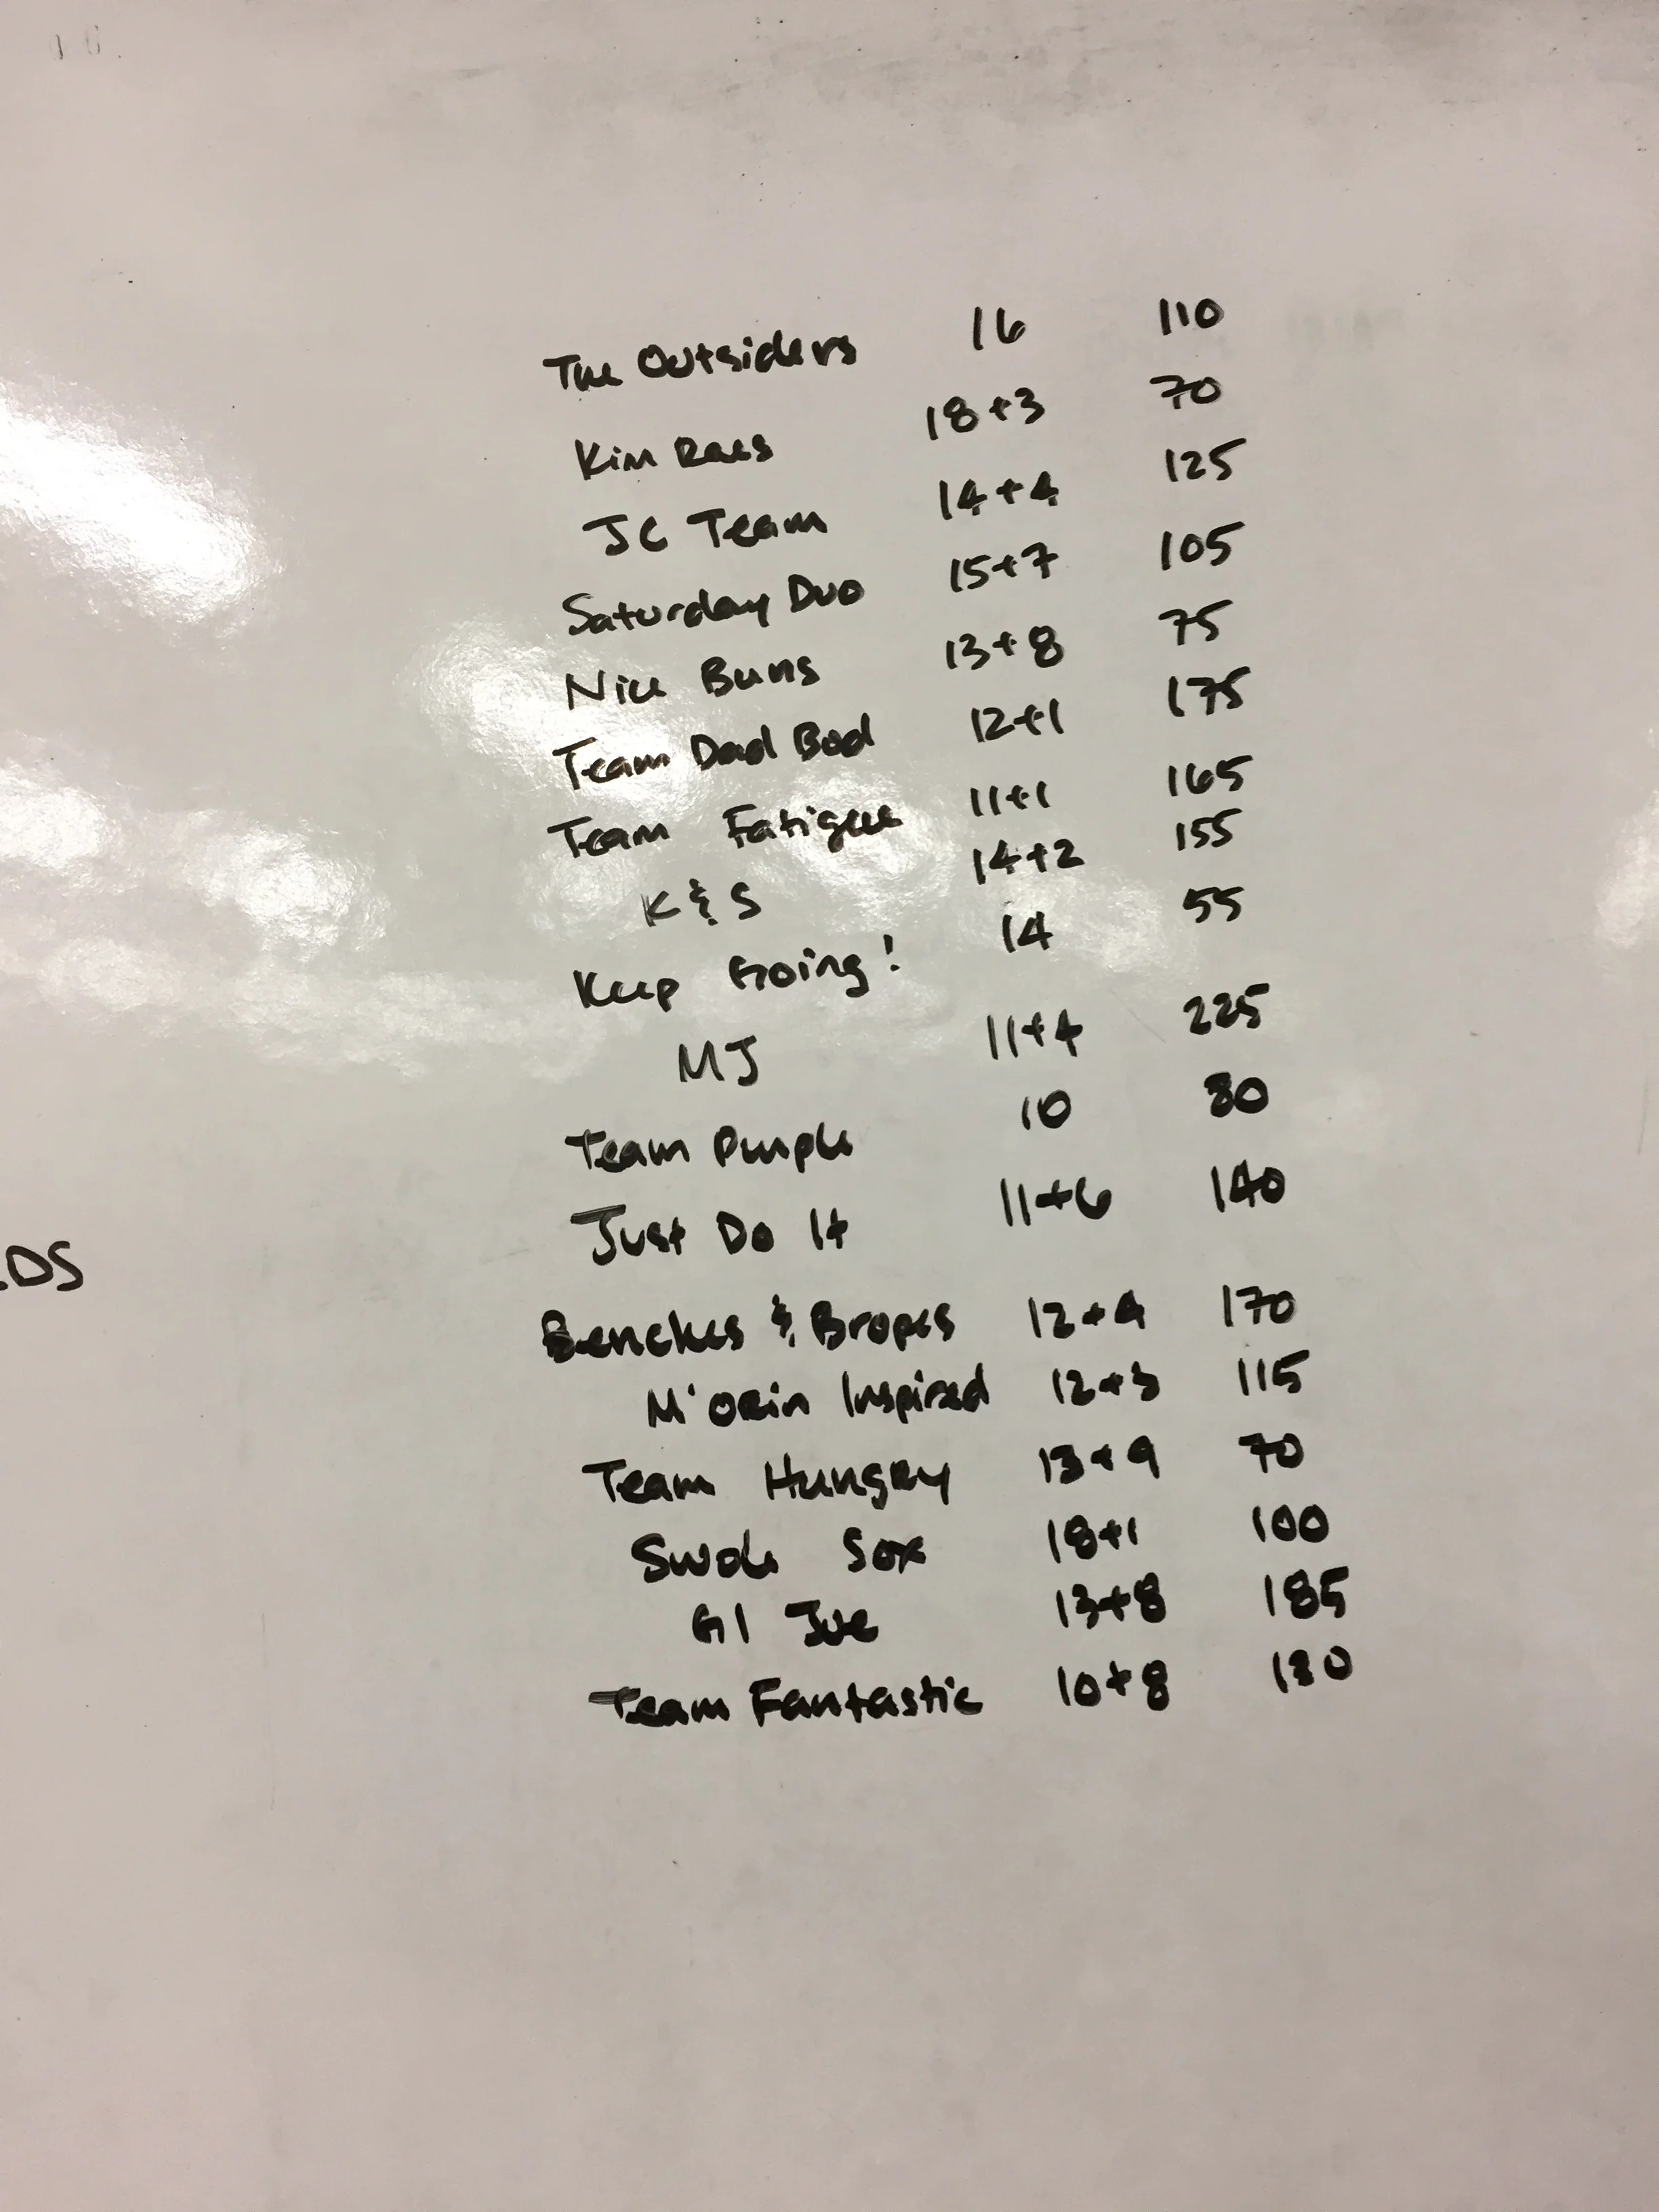 The Outsiders 16 110
Kim Raes 18+3 70
JC Team 14+4 125
Saturday Duo 15+7 105
Nice Buns 13+8 75
Team Dad Bod 12+1 175
Team Fatigue 11+1 165
K & S 14+2 155
Keep Going! 14 55
MJ 11+4 225
Team Purple 10 80
Just Do It 11+6 140
DS
Benches & Bropes 12+4 170
M'Orin Inspired 12+3 115
Team Hungry 13+9 70
Swole Sox 18+1 100
GI Joe 13+8 185
Team Fantastic 10+8